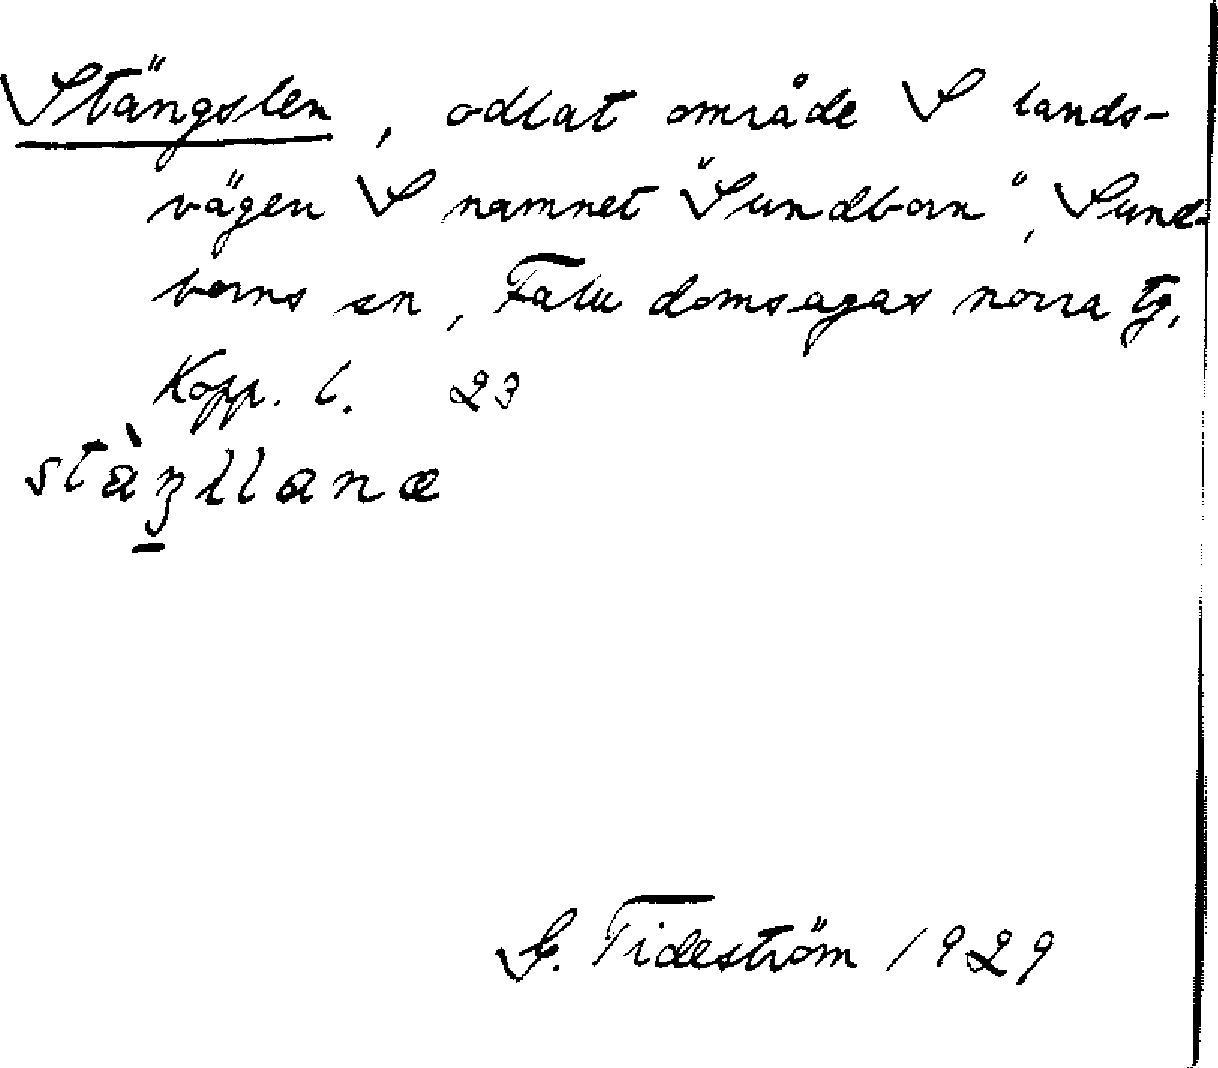 Stängslen, odlat område S lands-
vägen S namnet "Sundborn", Sund-
borns sn, Falu domsagas norra tg,
Kopp. l. 23
G. Tideström 1929